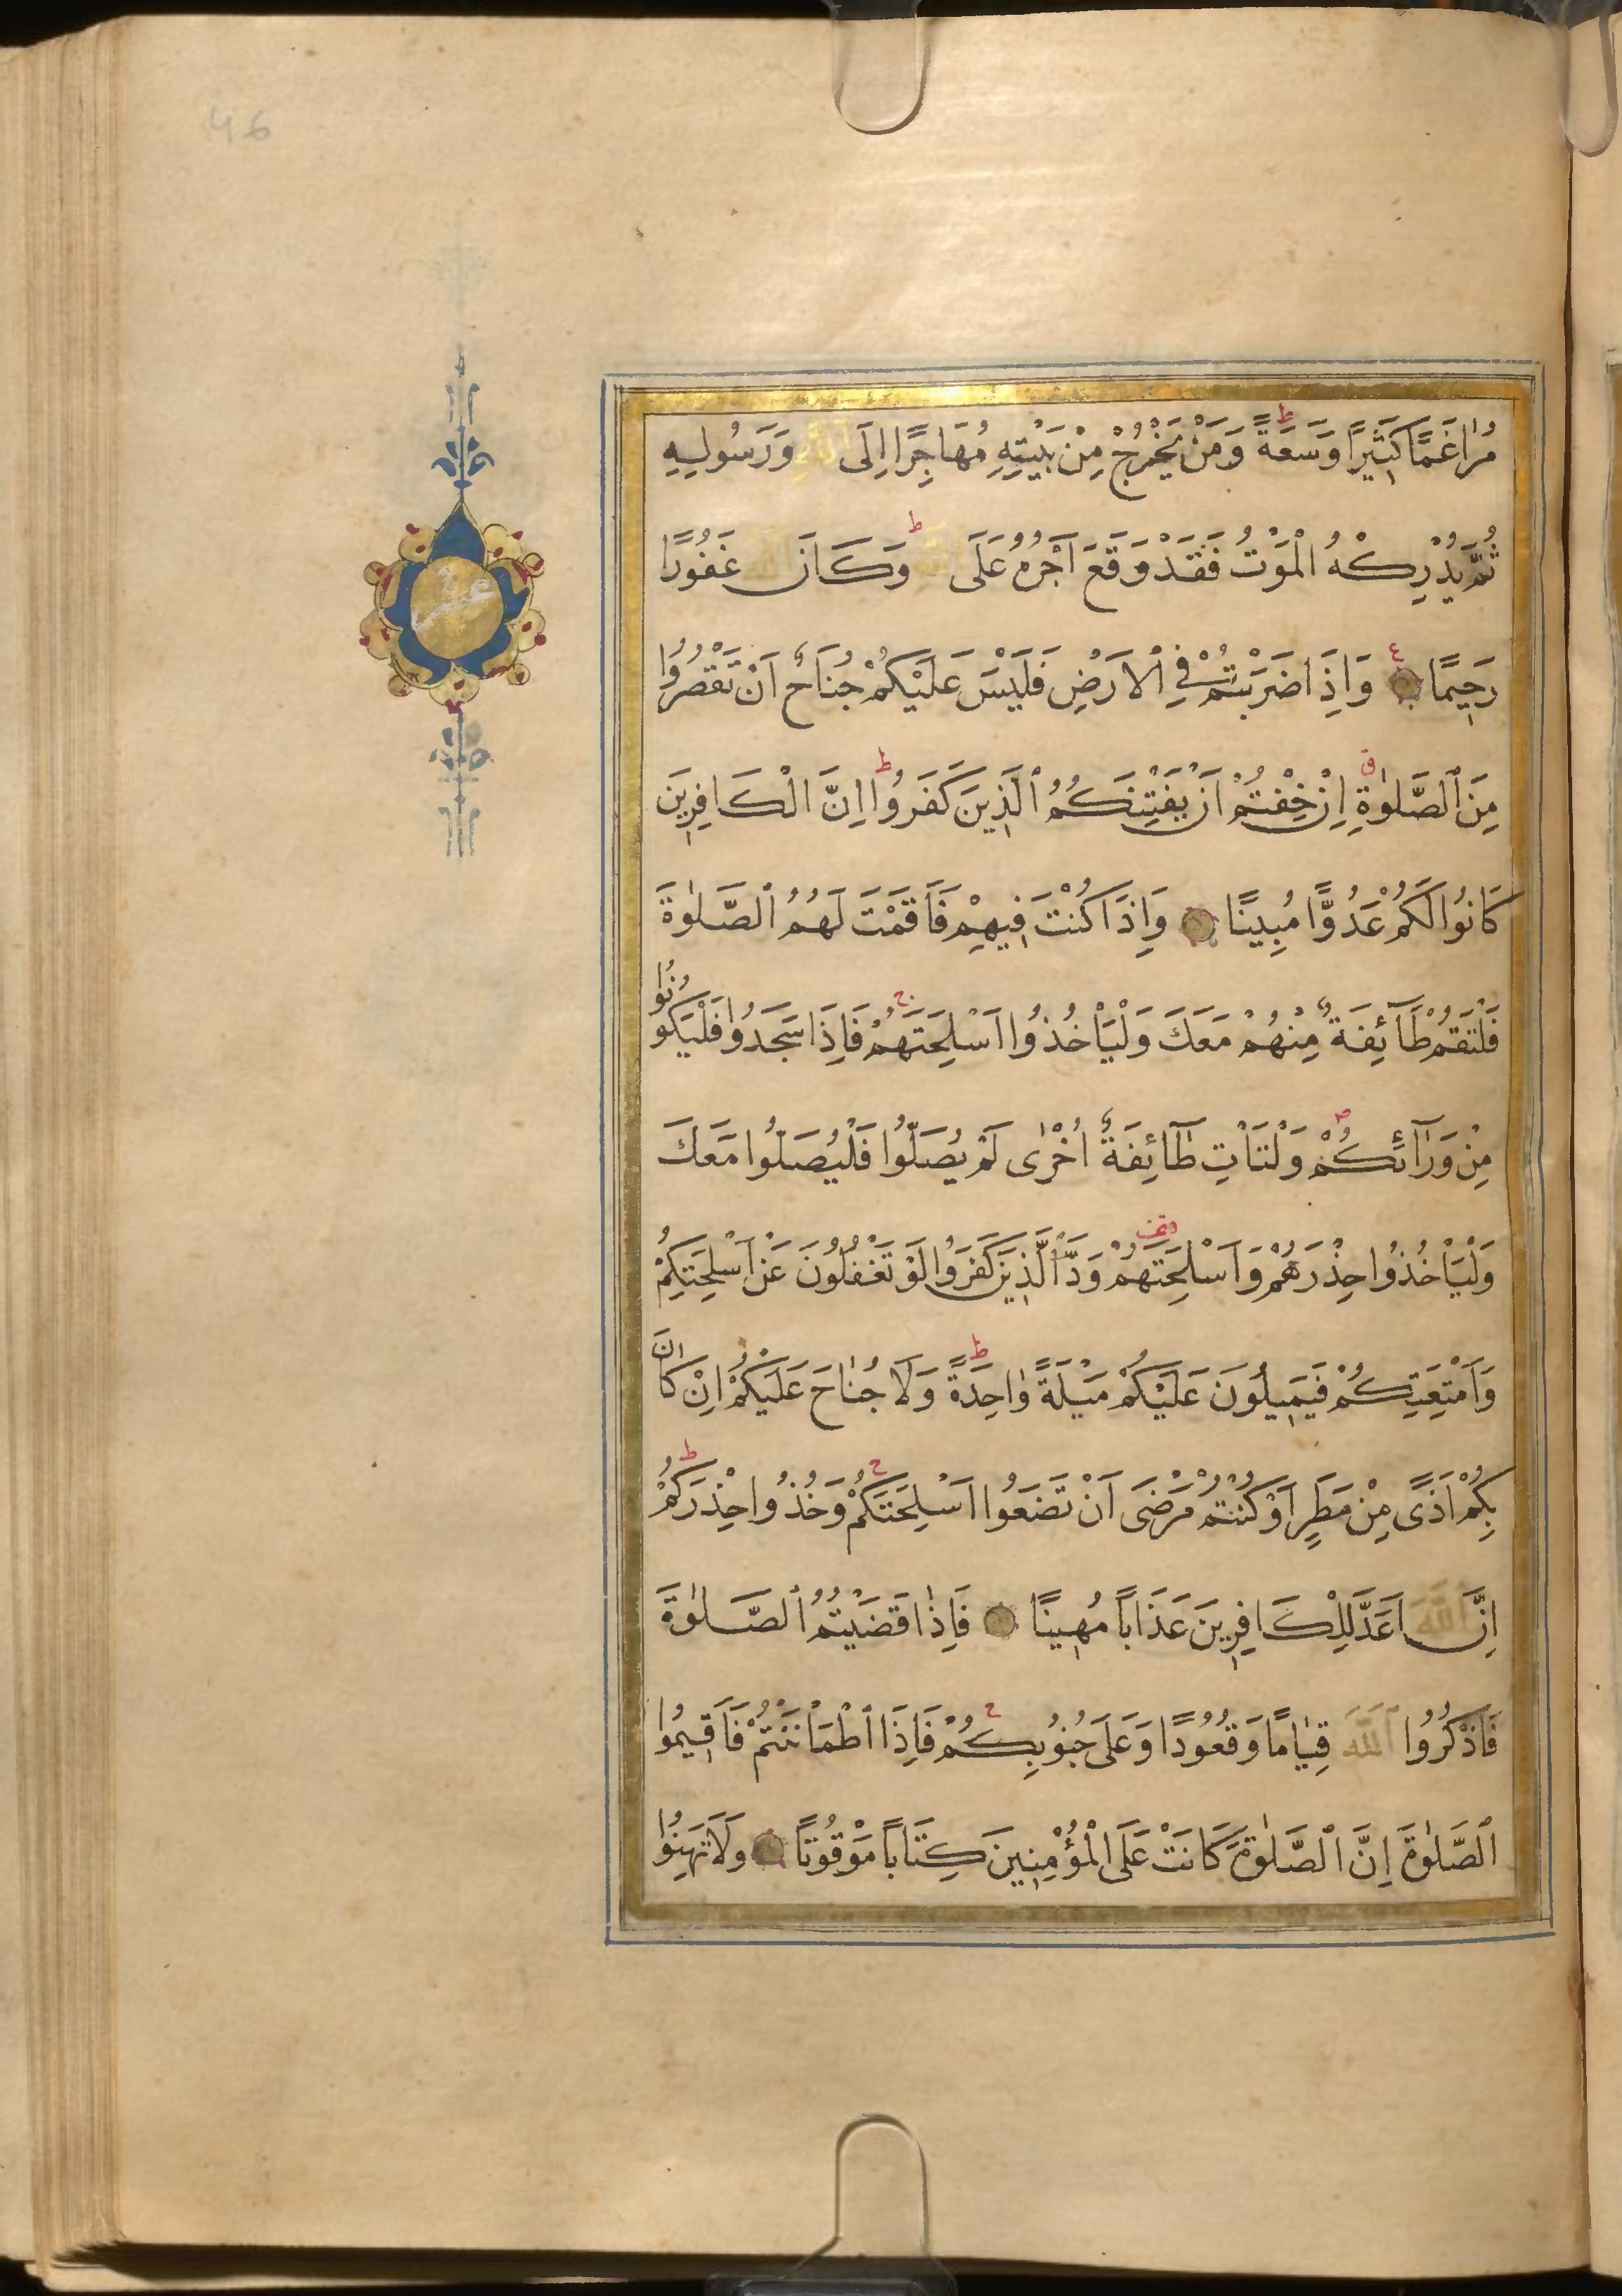 46
مُرَاغَمًا كَثِيرًا وَسَعَةً ط وَمَنْ يَخْرُجْ مِنْ بَيْتِهِ مُهَاجِرًا اِلَى اللّٰهِ وَرَسُولِهِ
ثُمَّ يُدْرِكْهُ الْمَوْتُ فَقَدْ وَقَعَ اَجْرُهُ عَلَى اللّٰهِ ط وَكَانَ اللّٰهُ غَفُورًا
رَحِيمًا ع وَاِذَا ضَرَبْتُمْ فِي الْاَرْضِ فَلَيْسَ عَلَيْكُمْ جُنَاحٌ اَنْ تَقْصُرُوا
مِنَ الصَّلٰوةِ ق اِنْ خِفْتُمْ اَنْ يَفْتِنَكُمُ الَّذِينَ كَفَرُوا ط اِنَّ الْكَافِرِينَ
كَانُوا لَكُمْ عَدُوًّا مُبِينًا وَاِذَا كُنْتَ فِيهِمْ فَاَقَمْتَ لَهُمُ الصَّلٰوةَ
فَلْتَقُمْ طَٓائِفَةٌ مِنْهُمْ مَعَكَ وَلْيَاْخُذُوا اَسْلِحَتَهُمْ ج فَاِذَا سَجَدُوا فَلْيَكُونُوا
مِنْ وَرَٓائِكُمْ ص وَلْتَاْتِ طَٓائِفَةٌ اُخْرٰى لَمْ يُصَلُّوا فَلْيُصَلُّوا مَعَكَ
وَلْيَاْخُذُوا حِذْرَهُمْ وَاَسْلِحَتَهُمْ وَدَّ الَّذِينَ كَفَرُوا لَوْ تَغْفُلُونَ عَنْ اَسْلِحَتِكُمْ
وَاَمْتِعَتِكُمْ فَيَمِيلُونَ عَلَيْكُمْ مَيْلَةً وَاحِدَةً ط وَلَا جُنَاحَ عَلَيْكُمْ اِنْ كَانَ
بِكُمْ اَذًى مِنْ مَطَرٍ اَوْ كُنْتُمْ مَرْضَى اَنْ تَضَعُوا اَسْلِحَتَكُمْ ج وَخُذُوا حِذْرَكُمْ ط
اِنَّ اللّٰهَ اَعَدَّ لِلْكَافِرِينَ عَذَابًا مُهِينًا فَاِذَا قَضَيْتُمُ الصَّلٰوةَ
فَاذْكُرُوا اللّٰهَ قِيَامًا وَقُعُودًا وَعَلَى جُنُوبِكُمْ ج فَاِذَا اطْمَاْنَنْتُمْ فَاَقِيمُوا
الصَّلٰوةَ اِنَّ الصَّلٰوةَ كَانَتْ عَلَى الْمُؤْمِنِينَ كِتَابًا مَوْقُوتًا وَلَا تَهِنُوا